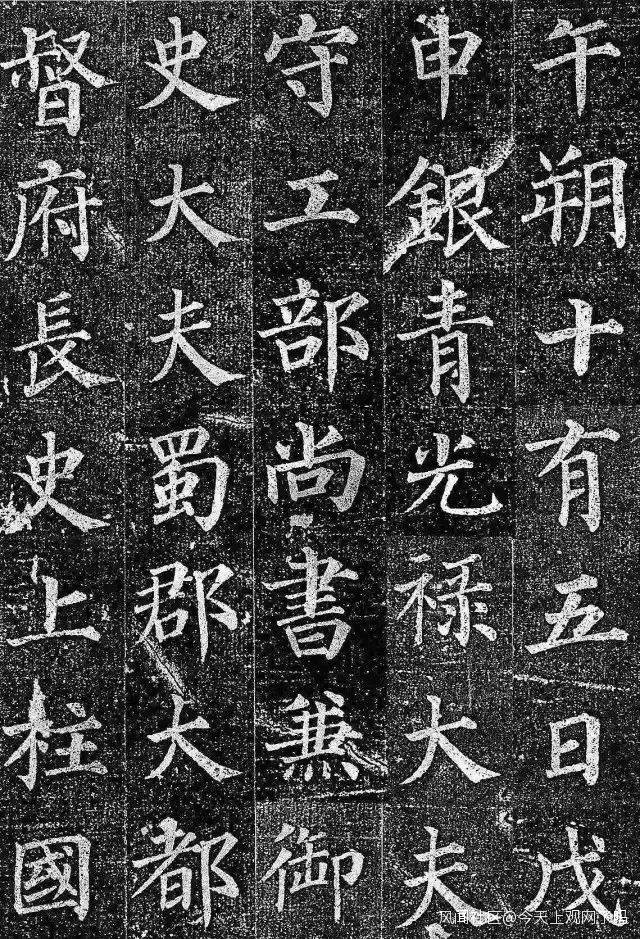 午朔十有五日戊
申銀青光禄大夫
守工部尚書兼御
史大夫蜀郡大都
督府長史上柱國
风闻社区@今天上观网了吗